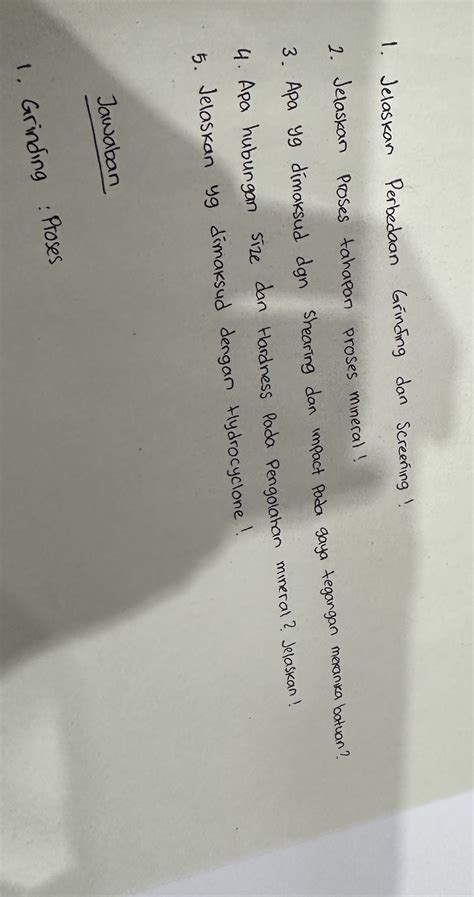 1. Jelaskan Perbedaan Grinding dan Screening!
2. Jelaskan Proses tahapan proses mineral!
3. Apa yg dimaksud dgn Shearing dan impact pada gaya tegangan mekanika batuan?
4. Apa hubungan size dan Hardness Pada Pengolahan mineral? Jelaskan!
5. Jelaskan yg dimaksud dengan Hydrocyclone!
Jawaban
1. Grinding : Proses